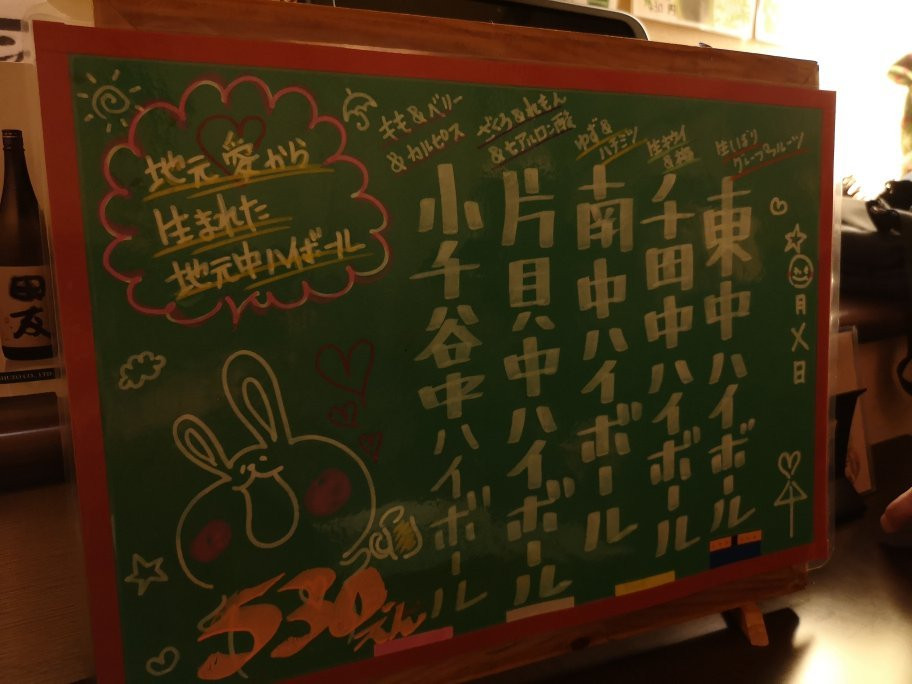 地元愛から
生まれた
地元中ハイボール
生しぼり
グレープフルーツ
東中ハイボール
生キウイ
千田中ハイボール
ゆず&
ハチミツ
南中ハイボール
ざくろ&れもん
&ヒアルロン酸
片貝中ハイボール
もも&ベリー
&カルピス
小千谷中ハイボール
530えん
月
日
田友